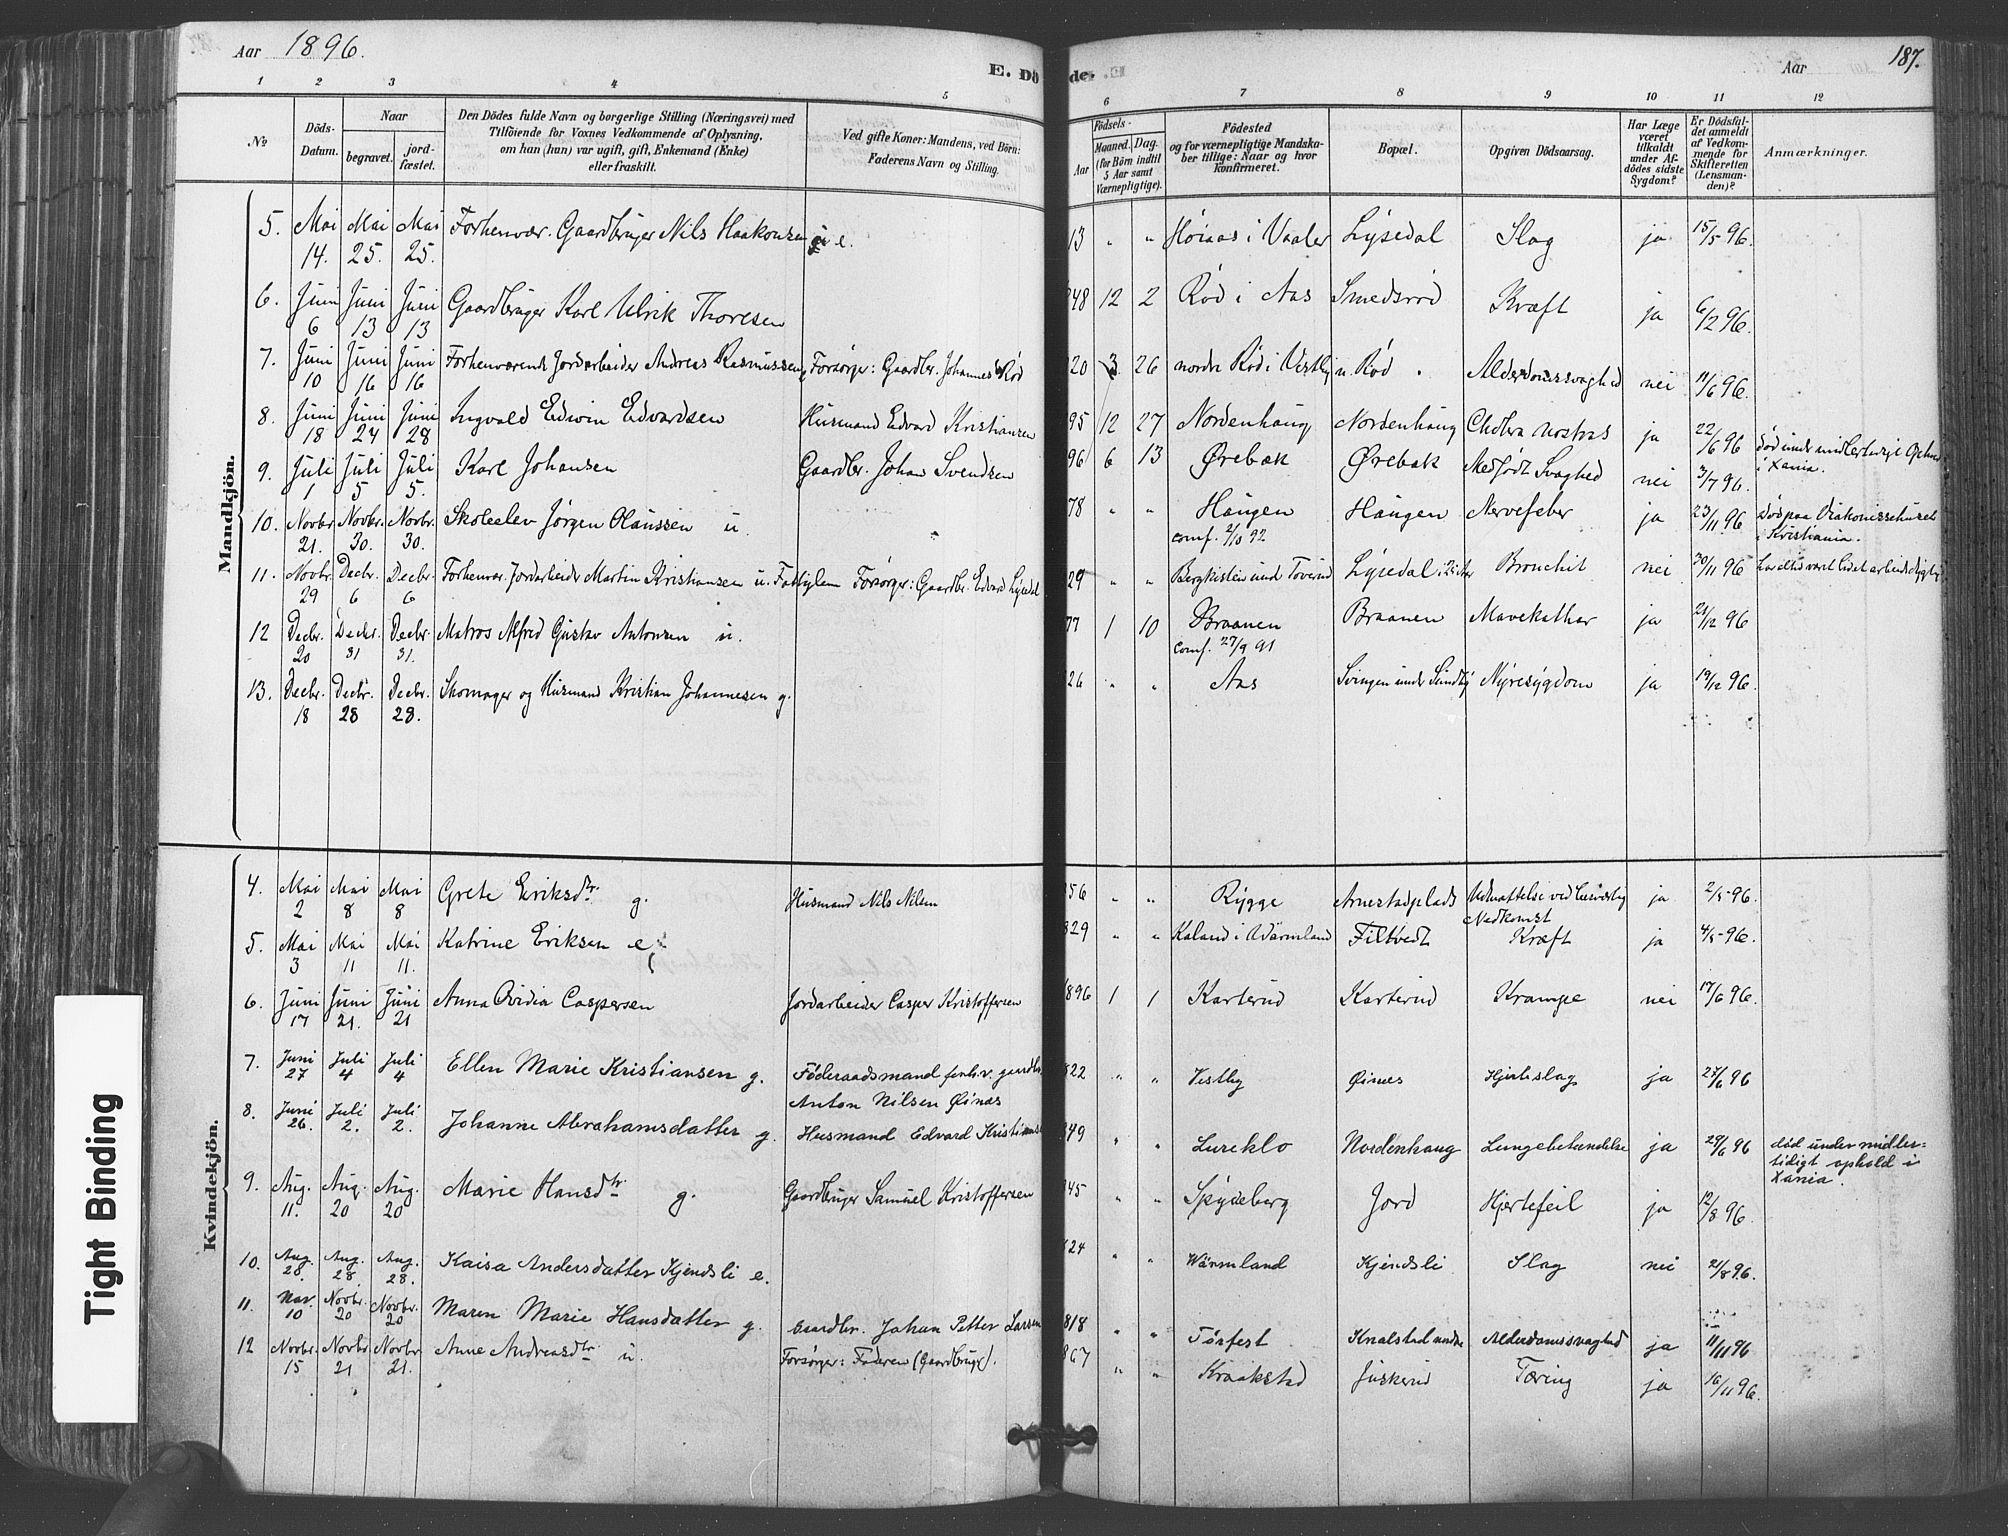 Aar 1896.
E. Dö
de.
Aar
187.
1 2 3 4 5 6 7 8 9 10 11 12
No
Döds-
Datum.
Naar
begravet.
jord-
fæstet.
Den Dödes fulde Navn og borgerlige Stilling (Næringsvei) med
Tilföiende for Voxnes Vedkommende af Oplysning,
om han (hun) var ugift, gift, Enkemand (Enke)
eller fraskilt.
Ved gifte Koner: Mandens, ved Börn:
Faderens Navn og Stilling.
Födsels-
Aar
Maaned. Dag.
(for Börn indtil
5 Aar samt
Værnepligtige).
Födested
og for værnepligtige Mandska-
ber tillige: Naar og hvor
konfirmeret.
Bopæl.
Opgiven Dödsaarsag.
Har Læge
været
tilkaldt
under Af-
dödes sidste
Sygdom?
Er Dödsfal-
det anmeldt
af Vedkom-
mende for
Skifteretten
(Lensman-
den)?
Anmærkninger.
Mandkjön.
5. Mai 14. Mai 25. Mai 25. Forhenvær. Gaardbruger Nils Haakonsen e. 13 " " Høiaas i Vaaler Lysedal Slag ja 15/5 96.
6. Juni 6 Juni 13 Juni 13 Gaardbruger Karl Ulrik Thoresen 48 12 2 Rød i Aas Smedsrød Kræft ja 6/2 96.
7. Juni 10 Juni 16 Juni 16 Forhenværende Jordarbeider Andreas Rasmussen Forsørger: Gaardbr. Johannes Rød 20 3 26 nordre Rød i Vestby n. Rød Alderdomssvaghed nei 11/6 96.
8. Juni 18 Juni 24 Juni 28 Ingvald Edvin Edvardsen Husmand Edvard Kristiansen 95 12 27 Nordenhaug Nordenhaug Cholera nostras ja 22/6 96 Død under midlertidigt Ophold
i Xania.
9. Juli 1 Juli 5 Juli 5. Karl Johansen Gaardbr. Johan Svendsen 96 6 13 Ørebæk Ørebæk Medfødt Svaghed nei 3/7 96.
10. Novbr. 21. Novbr. 30. Novbr. 30. Skoleelev Jørgen Olaussen u. 78 " " Haugen Haugen Nervefeber ja 23/11 96 Død paa Diakonissehuset
comf. 2/10 92 i Kristiania.
11. Novbr. 29 Decbr. 6 Decbr. 6 Forhenvær. Jordarbeider Martin Kristiansen u. Fattiglem Forsørger: Gaardbr. Edvard Lysedal 29 " " Bergkisten und. Toverud Lysedal Bronchit nei 30/11 96 har altid været lidet arbeidsdygtig
12 Decbr. 20 Decbr. 31 Decbr. 31. Matros Alfred Gustav Antonsen u. 77 1 10 Braanen Braanen Mavekathar ja 21/12 96
comf. 27/9 91
13. Decbr. 18 Decbr. 28 Decbr. 28. Skomager og Husmand Kristian Johannesen g. 26 " " Aas Svingen under Sundby Nyresygdom ja 19/12 96.
Kvindekjön.
4. Mai 2 Mai 8 Mai 8 Grete Eriksdtr g. Husmand Nils Nilsen 56 " " Rygge Arnestadplads Udmattelse ved
Nedkomst ja 2/5 96.
5. Mai 3 Mai 11 Mai 11. Katrine Eriksen e. 829 " " Kaland i Wärmland Filtvedt Kræft ja 4/5 96.
6. Juni 17 Juni 21. Juni 21 Anna Ovidia Caspersen Jordarbeider Casper Kristoffersen 896 1 1 Karterud Karterud Krampe nei 17/6 96.
7. Juni 27 Juli 4 Juli 4 Ellen Marie Kristiansen g. Føderaadsmand forhv. gaardbr.
Anton Nilsen Øinæs 822 " " Vestby Øinæs Hjerteslag ja 27/6 96
8. Juni 26. Juli 2. Juli 2. Johanne Abrahamsdatter g. Husmand Edvard Kristiansen 849 " " Lureklo Nordenhaug Lungebetændelse ja 29/6 96 død under midler-
tidigt ophold i
Xania.
9. Aug. 11. Aug. 20 Aug. 20 Marie Hansdtr g. Gaardbruger Samuel Kristoffersen 45 " " Spydeberg Jord Hjertefeil ja 12/8 96.
10. Aug. 28. Aug. 28 Aug. 28. Kaisa Andersdatter Kjendsli e. 824 " " Wärmland Kjendsli Slag nei 2/8 96.
11. Nov. 10 Novbr. 20 Novbr. 20 Maren Marie Hansdatter g. Gaardbr. Johan Petter Larsen 818 " " Tosfest Knalstad Alderdomssvaghed ja 11/11 96
12 Novbr. 15 Novbr. 21 Novbr. 21. Anne Andreasdtr u. Forsørger: Faderen (Gaardbruger). 867 " " Kraakstad Juskerud Tæring ja 16/11 96.
Tight Binding